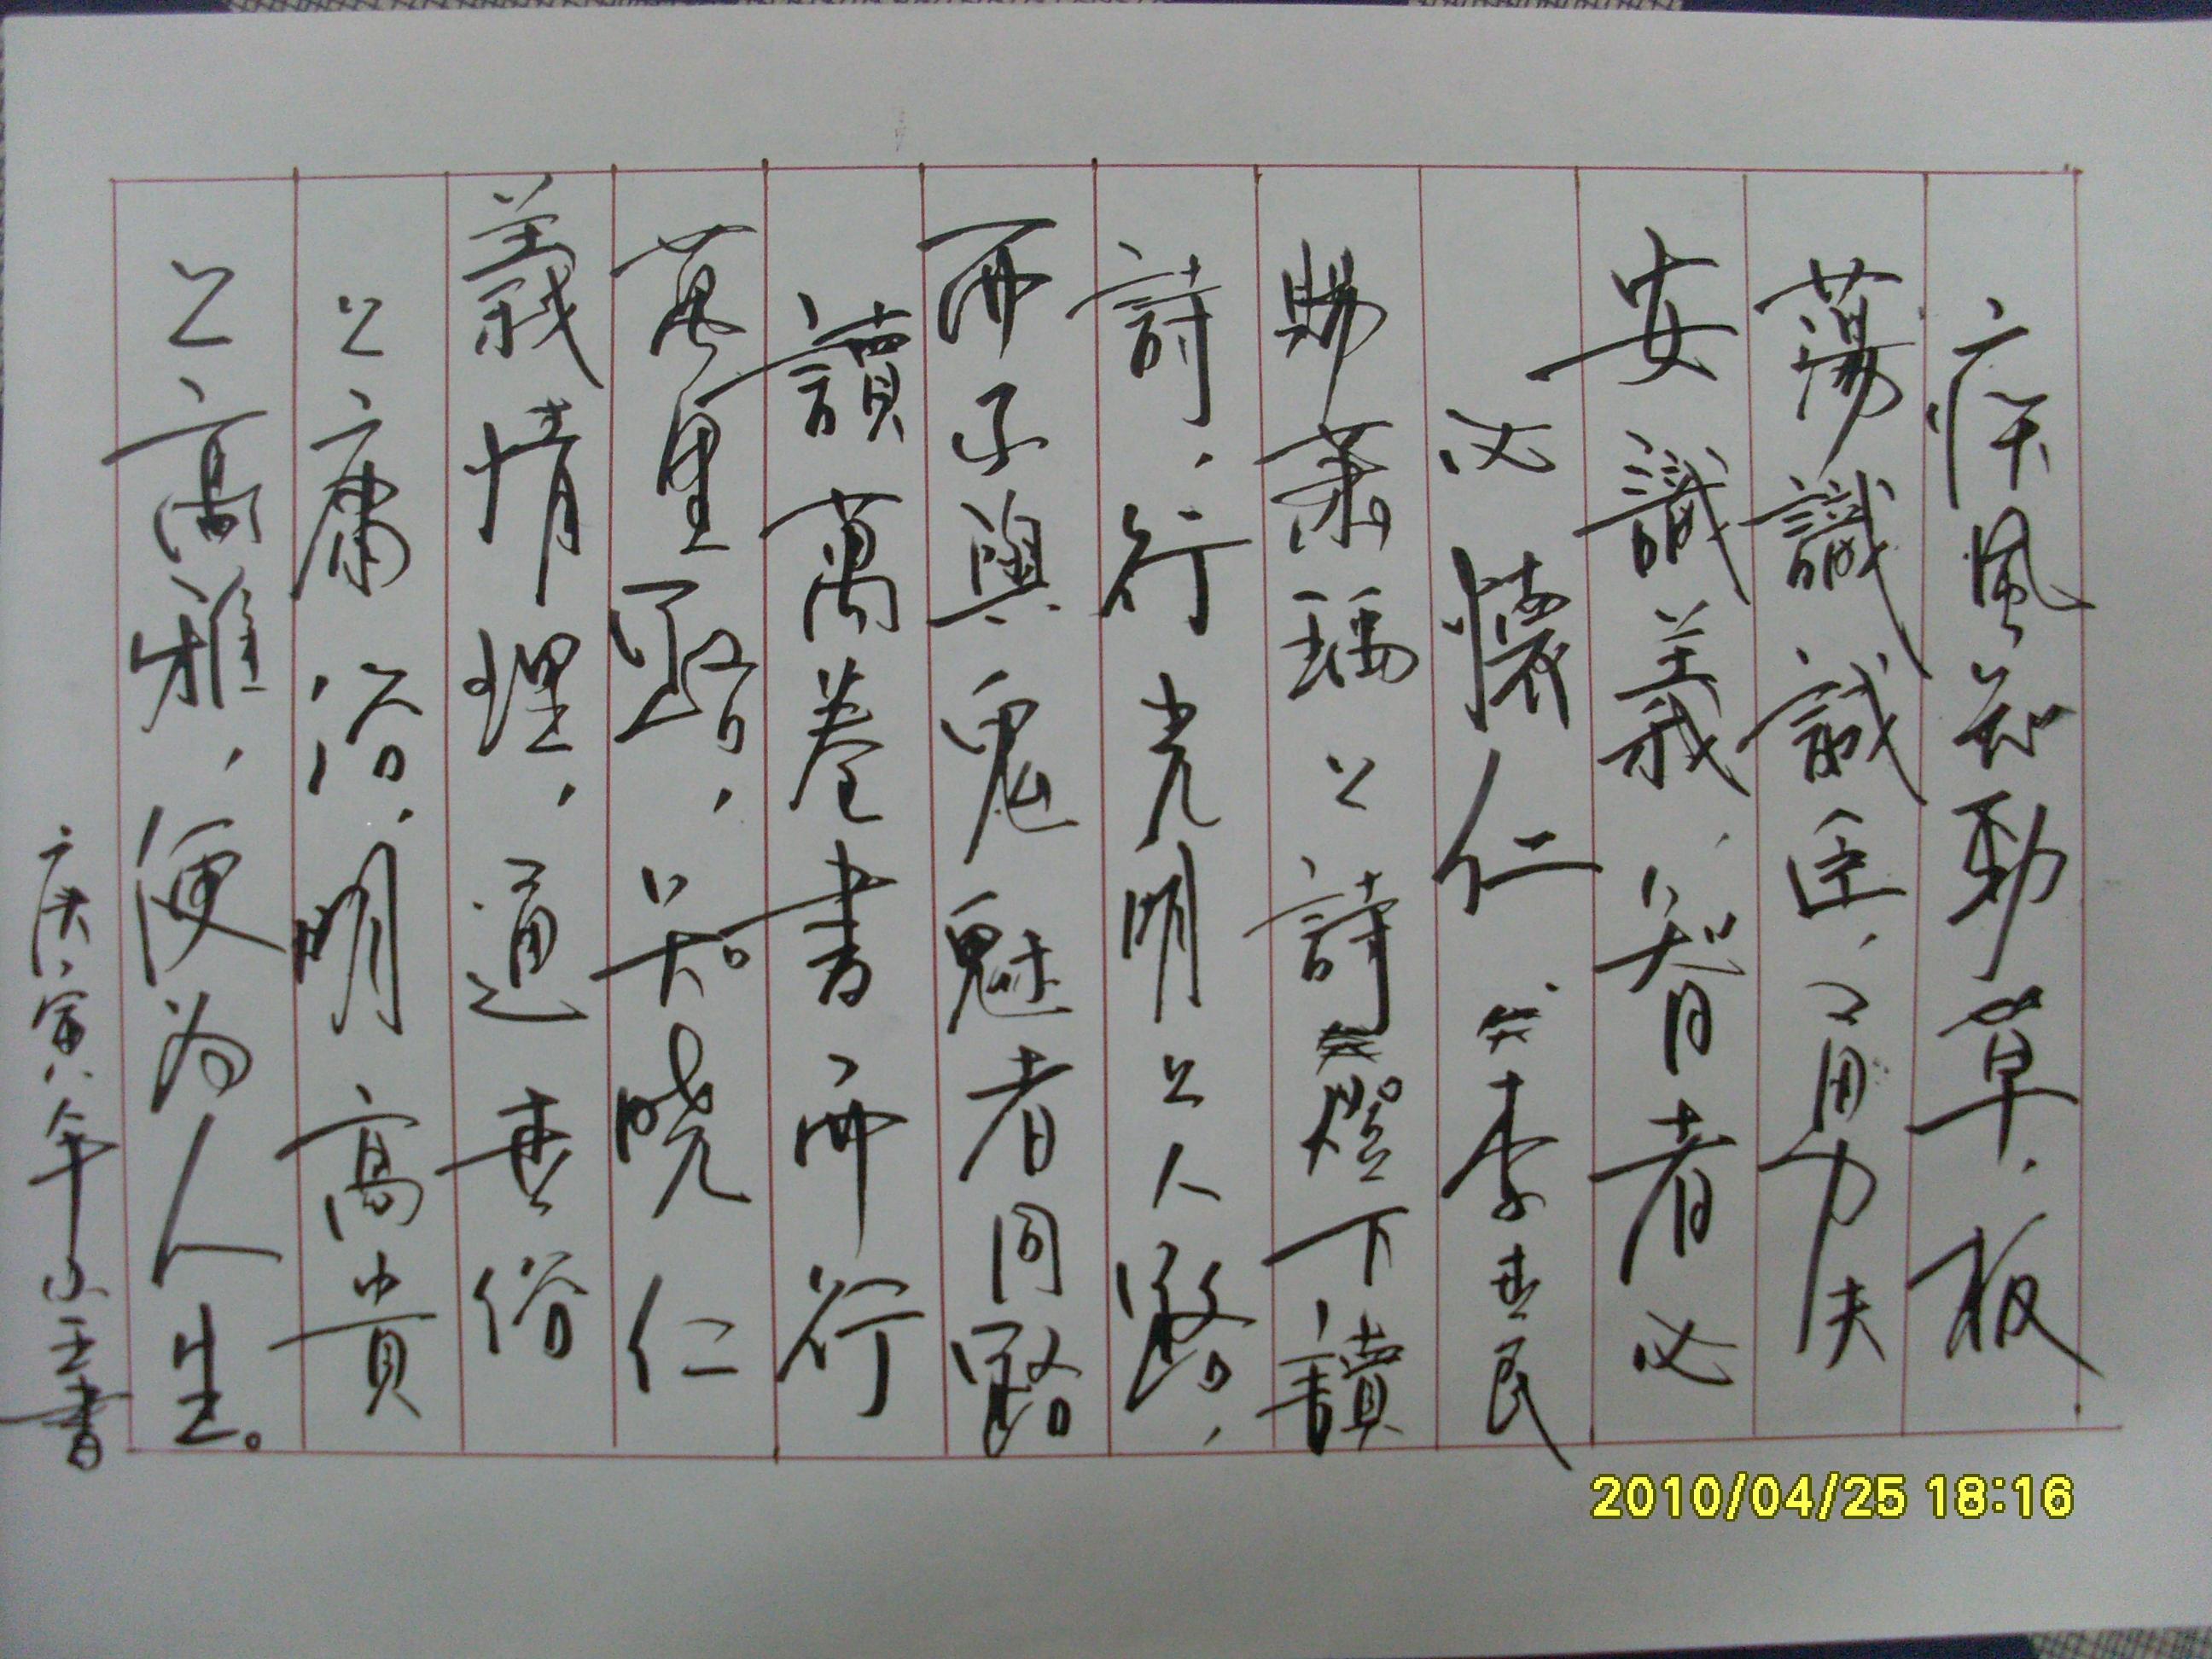 疾風知勁草,板
蕩識誠臣,勇夫
安識義,智者必
必懷仁 李世民
賜蕭瑀之詩 燈下讀
詩,行光明之人路,
而不與鬼魅者同路
讀萬卷書而行
萬里路,知曉仁
義情理,通世俗
之庸俗,明高貴
之高雅,便为人生。
庚寅年 書
2010/04/25 18:16